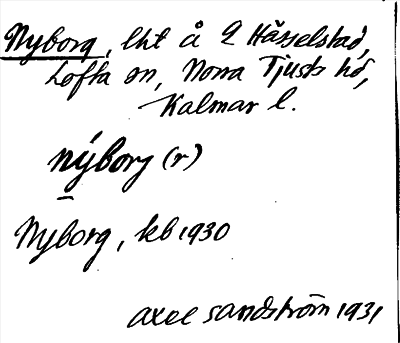 Nyborg, lht å Hässelstad,
Lofta sn, Norra Tjusts hd,
Kalmar l.
nýborg (r)
Nyborg, kb 1930
Axel Sandström 1931